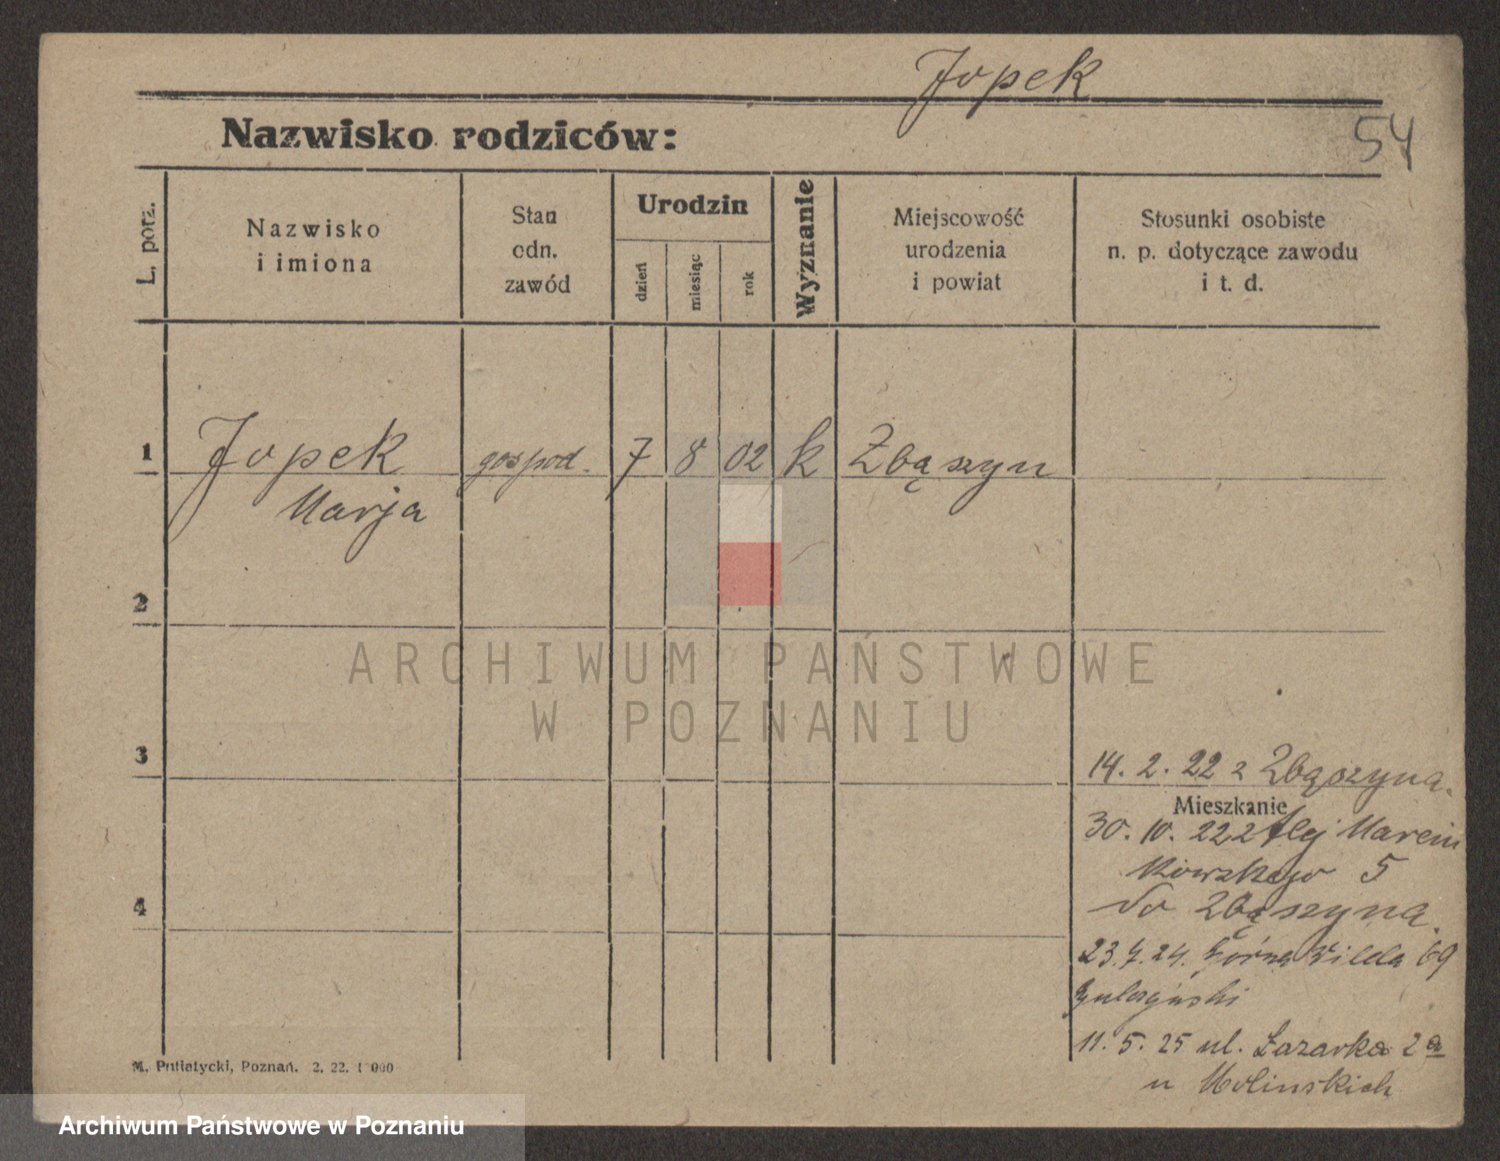 Jopek
54
Nazwisko rodziców:
L. porz.
Nazwisko
i imiona
Stan
odn.
zawód
Urodzin
dzień
miesiąc
rok
Wyznanie
Miejscowość
urodzenia
i powiat
Stosunki osobiste
n. p. dotyczące zawodu
i t. d.
1
Jopek
Marja
gospod.
7
8
02
k
Zbąszyn
2
ARCHIWUM PAŃSTWOWE
W POZNANIU
3
14. 2. 22 z Zbąszyna.
Mieszkanie
30. 10. 22 z Marcin
kowskiego 5
do Zbąszyna.
4
23.7.24. Górna Wilda 69
11. 5. 25 ul. Łazarka 2a
u Molinskich
M. Putiatycki, Poznań. 2. 22. 1 000
Archiwum Państwowe w Poznaniu